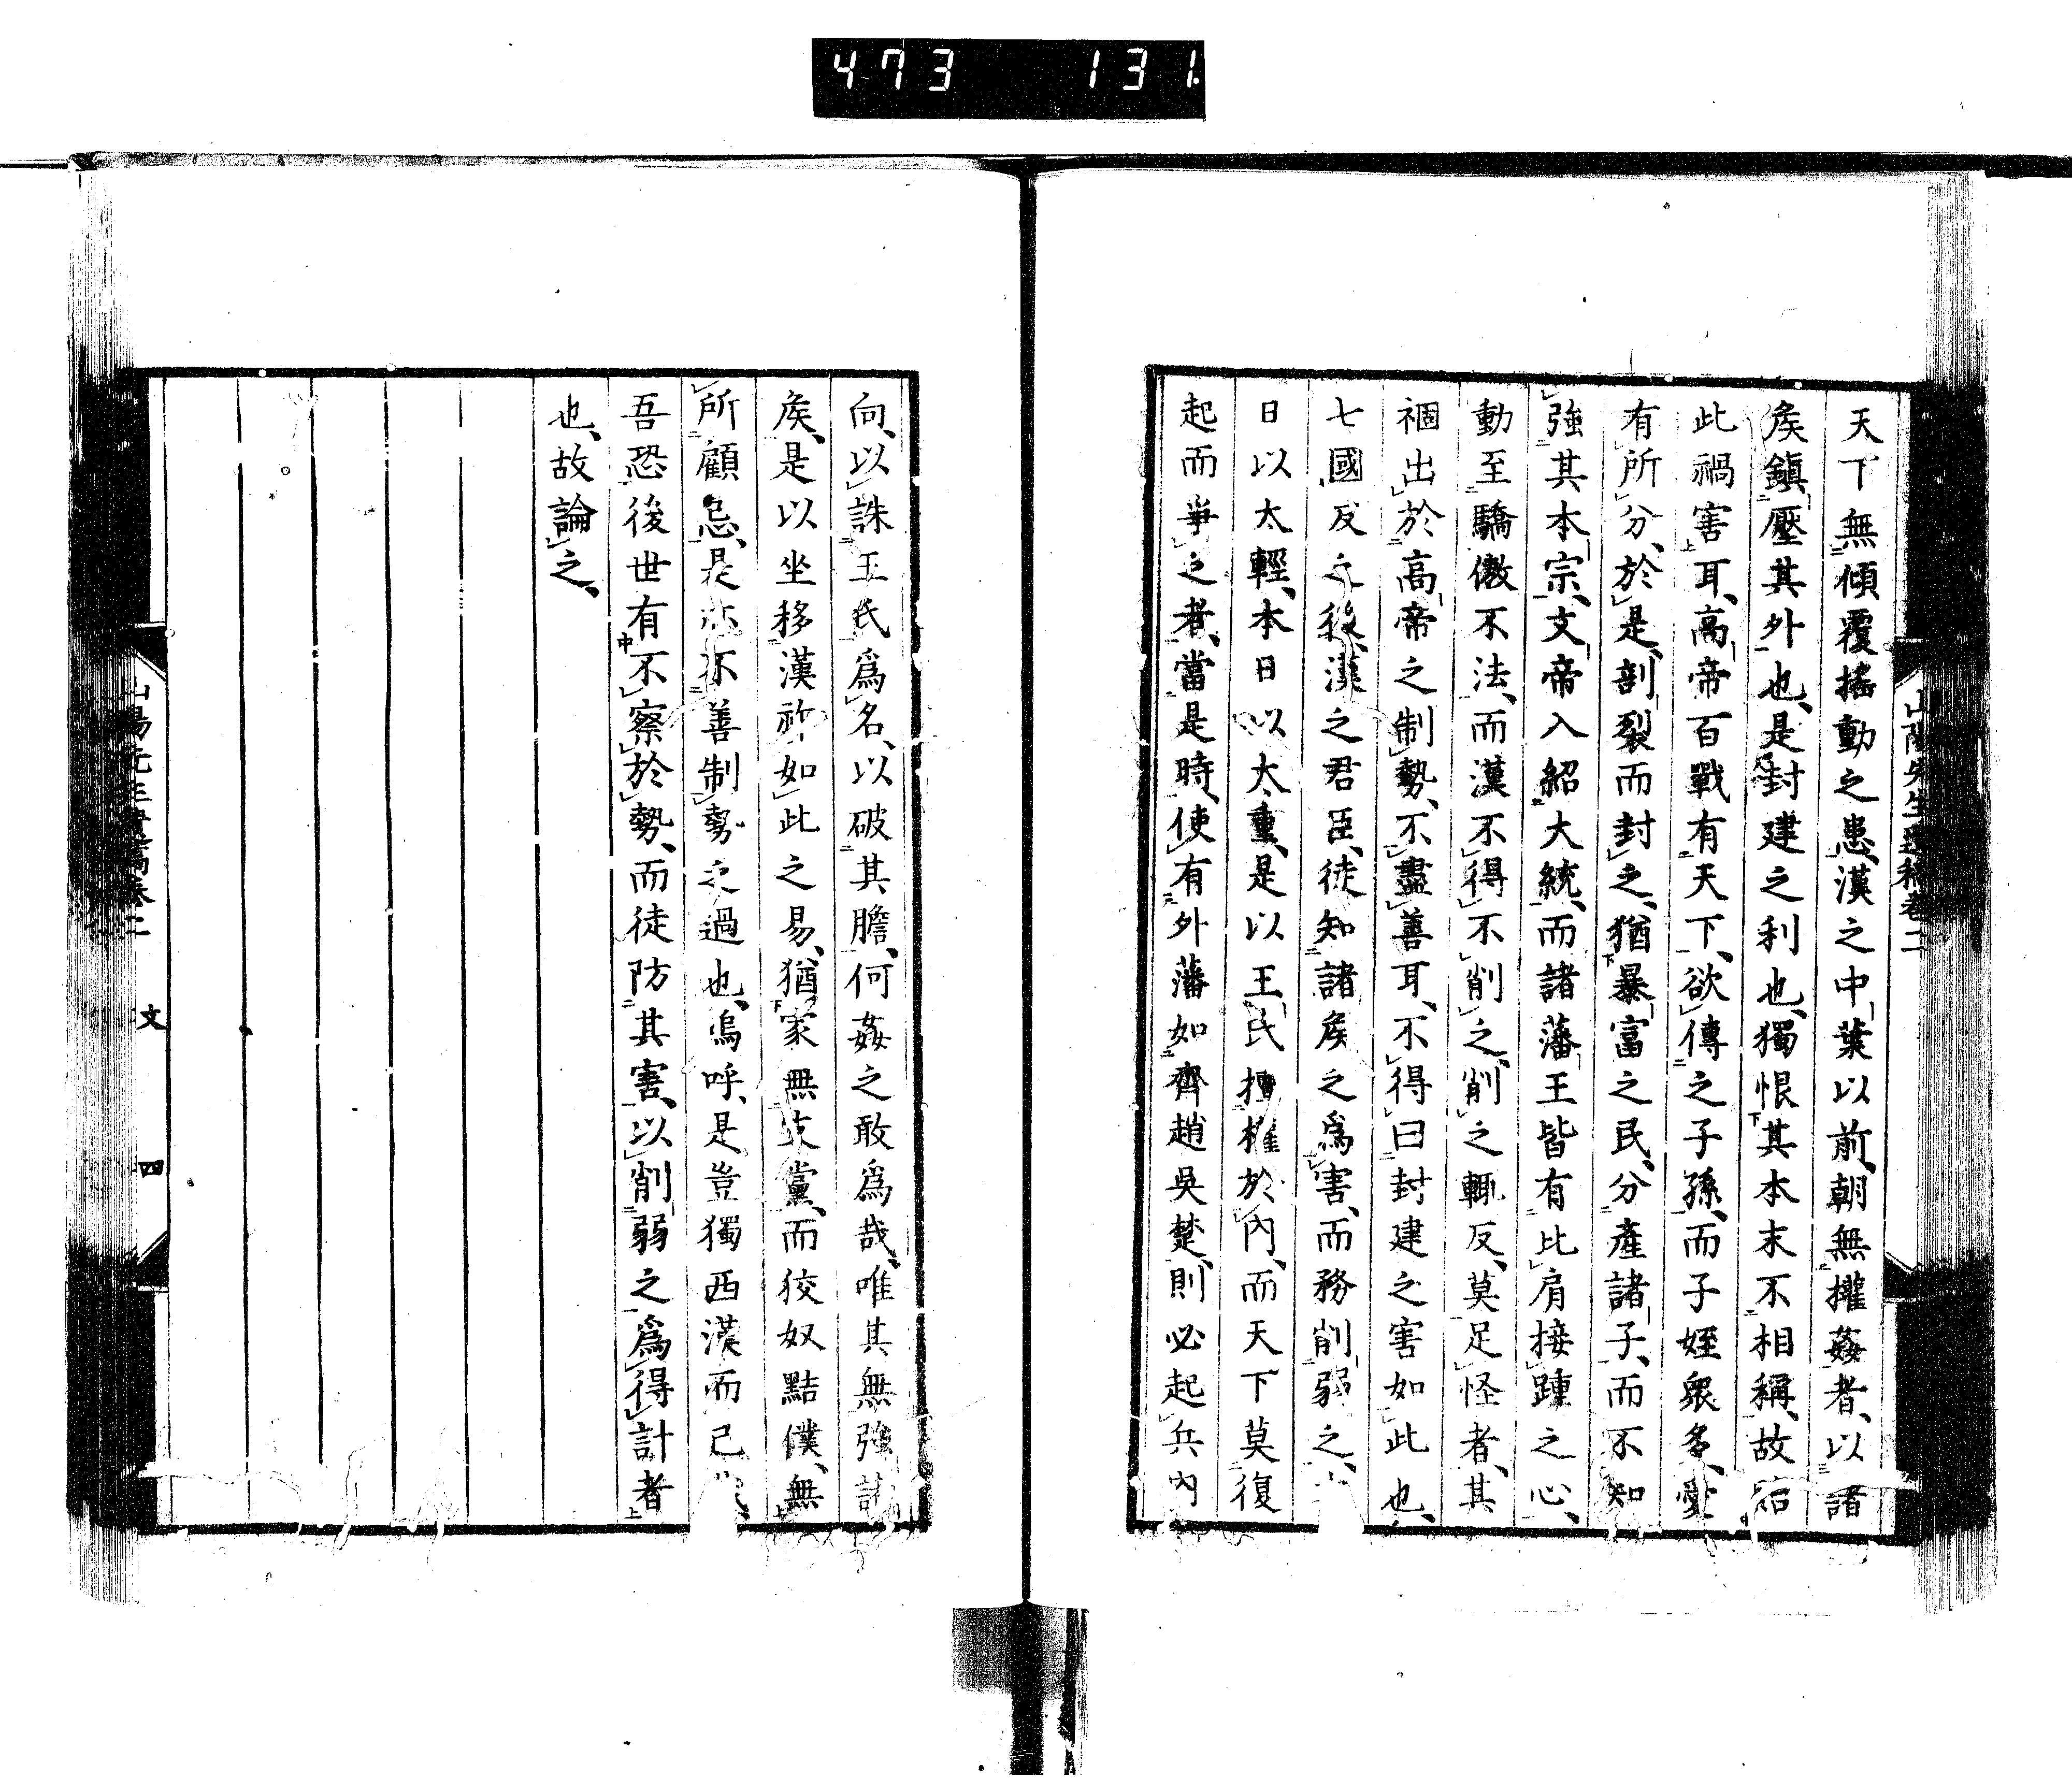 473 131
天下無傾覆搖動之患、漢之中葉以前、朝無權姦者、以諸
矦鎮壓其外也、是封建之利也、獨恨其本末不相稱、故
此禍害耳、高帝百戰有天下、欲傳之子孫、而子姪衆多、愛
有所分、於是、剖裂而封之、猶暴富之民、分產諸子、而不知
強其本宗、文帝入紹大統、而諸藩王皆有比肩接踵之心、
動至驕傲不法、而漢不得不削之、削之輒反、莫足怪者、其
禍出於高帝之制勢、不盡善耳、不得曰封建之害如此也、
七國反之後、漢之君臣、徒知諸矦之爲害、而務削弱之、
日以太輕、本日以太重、是以王氏擅權於內、而天下莫復
起而爭之者、當是時、使有外藩如齊趙吳楚、則必起兵內
向、以誅王氏爲名、以破其膽、何姦之敢爲哉、唯其無強諸
矦、是以坐移漢祚如此之易、猶家無支黨、而狡奴黠僕、無
所顧忌、是亦不善制勢之過也、嗚呼、是豈獨西漢而已
吾恐後世有不察於勢、而徒防其害、以削弱之爲得計者
也、故論之、
山陽先生遺稿卷二 文 四